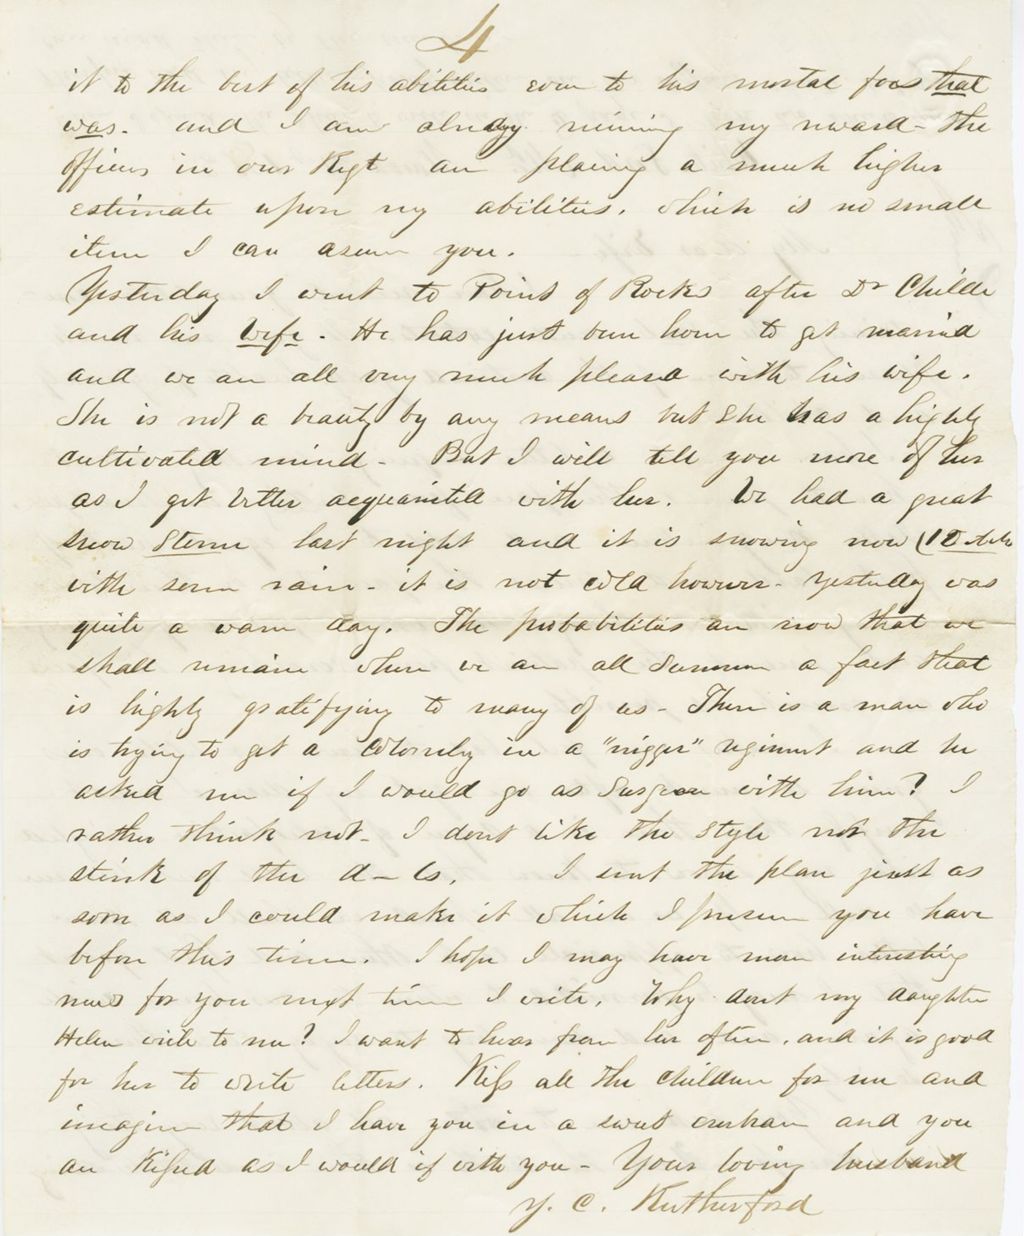 4
it to the best of his abilities even to his mortal foes that
was. and I am already reaping my reward - the
officers in our Regt are placing a much higher
estimate upon my abilities. which is no small
item I can assure you.
Yesterday I went to Point of Rocks after Dr Childe
and his Wife. He has just been home to get married
and we are all very much pleased with his wife.
She is not a beauty by any means but she has a highly
cultivated mind - But I will tell you more of her
as I get better acquainted with her. We had a great
snow Storm last night and it is snowing now (12
with some rain - it is not cold however - yesterday was
quite a warm day. The probabilities are now that we
shall remain where we are all Summer a fact that
is highly gratifying to many of us - There is a man who
is trying to get a Colonelcy in a "nigger" regiment and he
asked me if I would go as Surgeon with him? I
rather think not - I dont like the style nor the
stink of the d-ls. I sent the plan just as
soon as I could make it which I presume you have
before this time. I hope I may have more interesting
news for you next time I write. Why dont my daughter
Helen write to me? I want to hear from her often. and it is good
for her to write letters. Kiss all the children for me and
imagine that I have you in a sweet embrace and you
are Kissed as I would if with you - Your loving husband
J. C. Rutherford